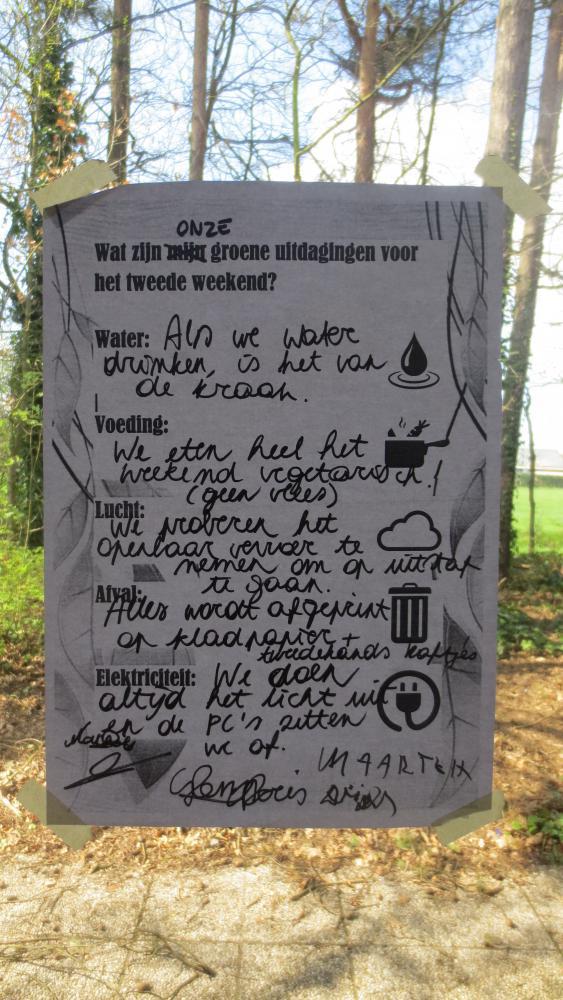 ONZE
Wat zijn mijn groene uitdagingen voor
het tweede weekend?
Water: Als we water
drinken, is het van
de kraan.
Voeding:
We eten heel het
weekend vegetarisch!
(geen vlees)
Lucht:
We proberen het
openbaar vervoer te
nemen om op uitstap
te gaan.
Afval:
Alles wordt afgeprint
op kladpapier +
tweedehands kaftjes
Elektriciteit: We doen
altijd het licht uit
en de PC's zetten
we af.
MAARTEN
Joris